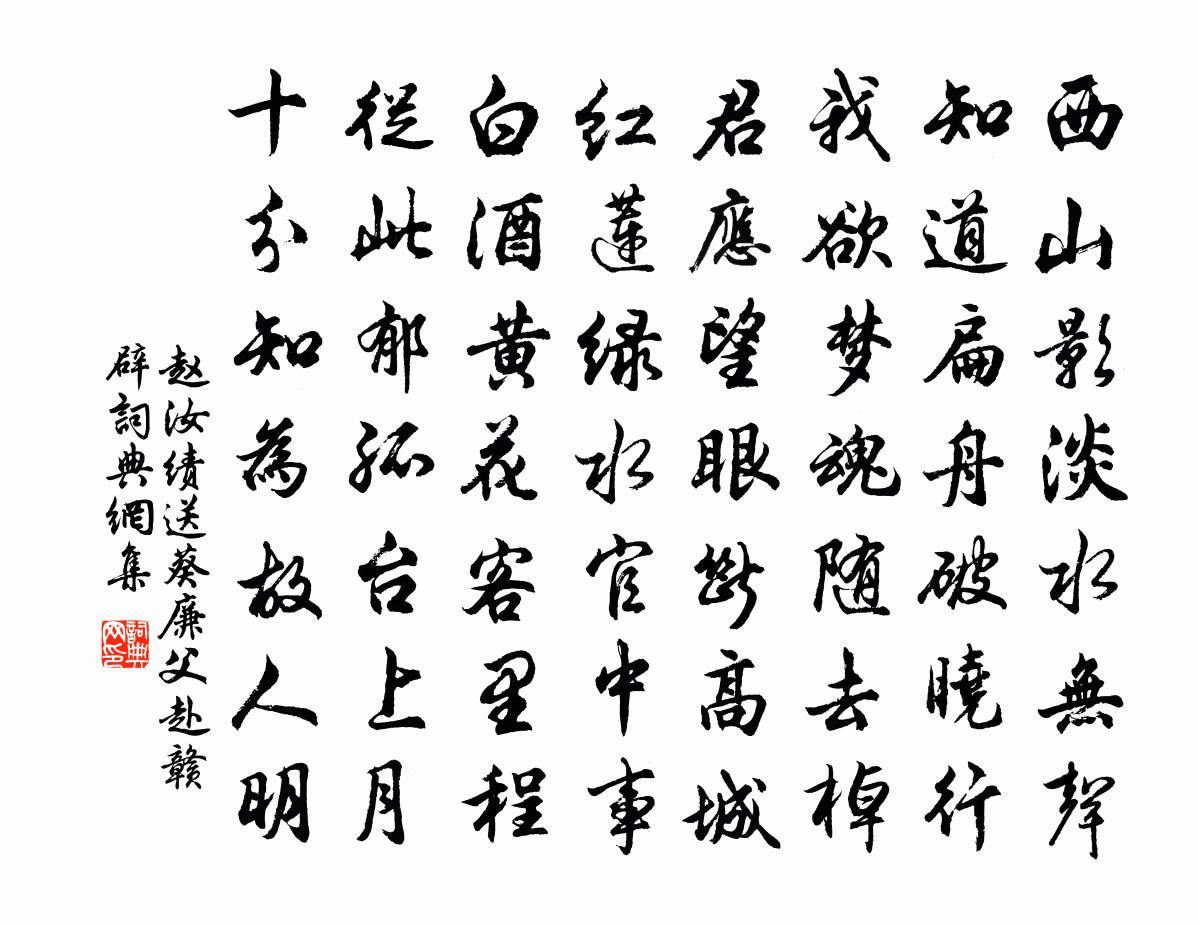 西山影淡水無聲
知道扁舟破曉行
我欲梦魂随去棹
君應望眼斷高城
红蓮绿水官中事
白酒黄花客里程
從此郁孤台上月
十分知為故人明
赵汝績送葵廉父赴贛
辟詞典網集
詞典
网印